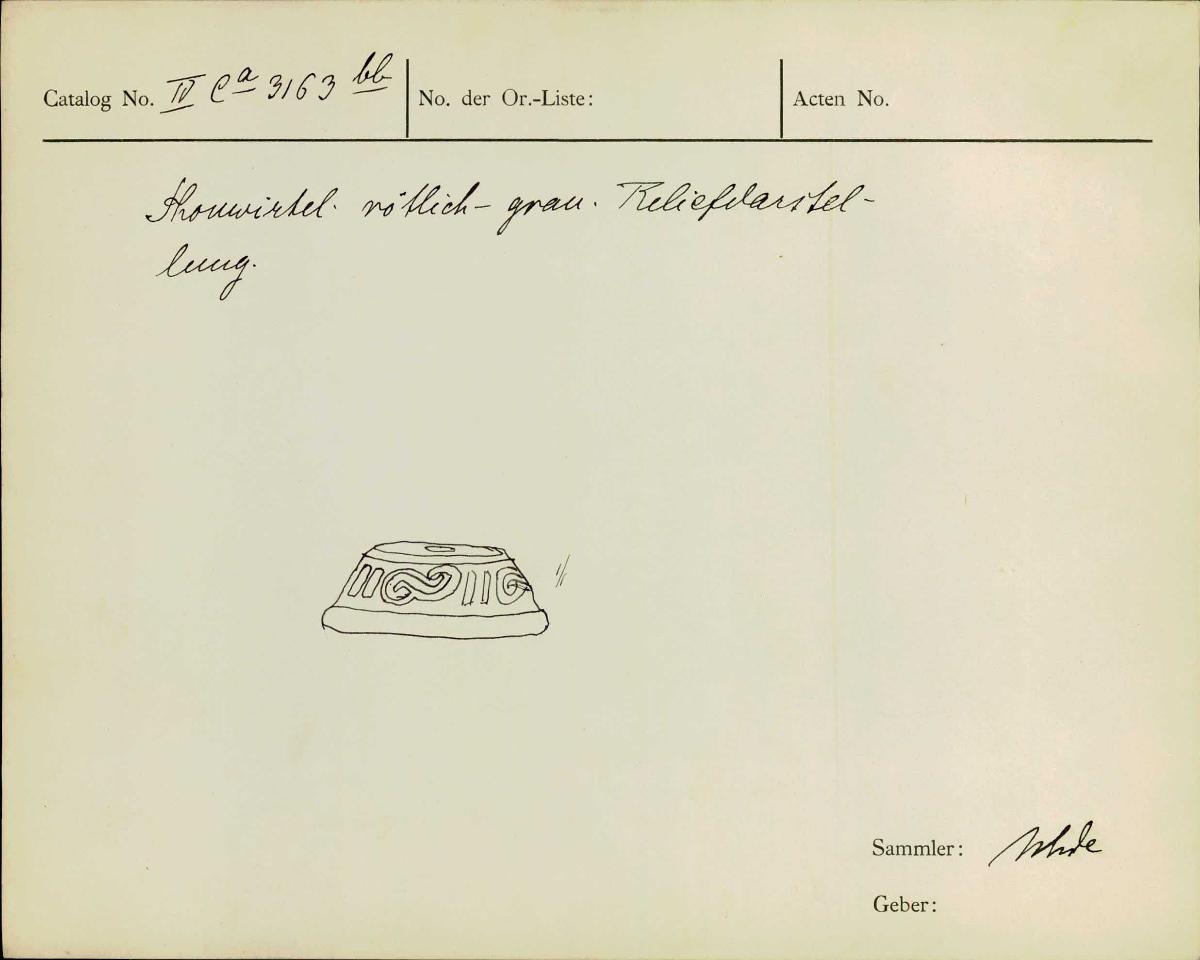 Catalog No. IV Ca 3163 bb No. der Or.-Liste: Acten No.
Thonwirtel. rötlich-grau. Reliefdarstel-
lung.
1/1
Sammler: Uhde
Geber: